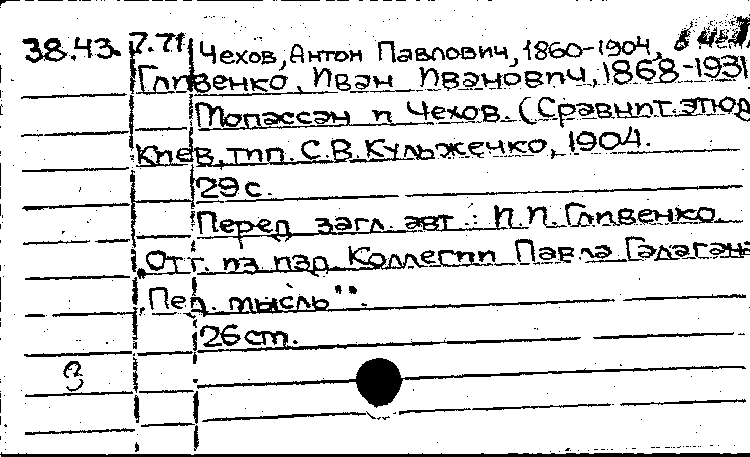 38.43. 7.71 Чехов, Антон Павлович, 1860-1904,
Гливенко, Иван Иванович, 1868-1931
Мопассан и Чехов. (Сравнит. этюд
Киев, тип. С.В. Кульженко, 1904.
29 с.
Перед загл. авт.: И.И. Гливенко.
„Отт. из изд. Коллегии Павла Галагана
„Пед. мысль".
26 ст.
З